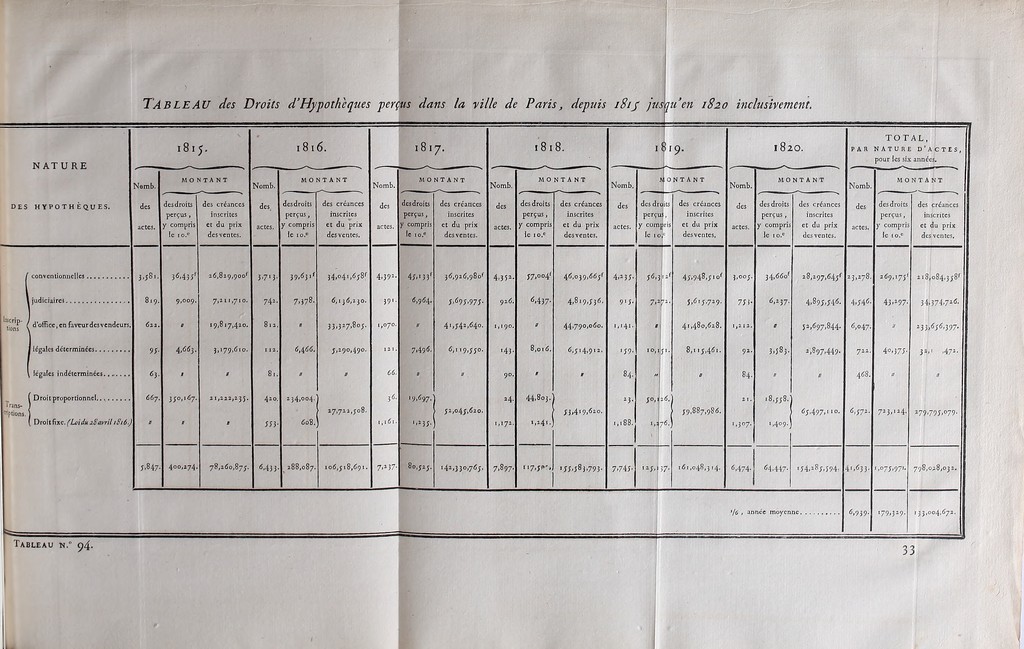 TABLEAU des Droits d'Hypothèques perçus dans la ville de Paris, depuis 1815 jusqu'en 1820 inclusivement.
NATURE DES HYPOTHÈQUES. 1815. 1816. 1817. 1818. 1819. 1820. TOTAL, PAR NATURE D'ACTES, pour les six années.
MONTANT MONTANT MONTANT MONTANT MONTANT MONTANT MONTANT
Nomb. des actes. des droits perçus, y compris le 10.e des créances inscrites et du prix des ventes. Nomb. des actes. des droits perçus, y compris le 10.e des créances inscrites et du prix des ventes. Nomb. des actes. des droits perçus, y compris le 10.e des créances inscrites et du prix des ventes. Nomb. des actes. des droits perçus, y compris le 10.e des créances inscrites et du prix des ventes. Nomb. des actes. des droits perçus, y compris le 10.e des créances inscrites et du prix des ventes. Nomb. des actes. des droits perçus, y compris le 10.e des créances inscrites et du prix des ventes. Nomb. des actes. des droits perçus, y compris le 10.e des créances inscrites et du prix des ventes.
Inscriptions
conventionnelles........... 3,581. 36,435f 26,829,900f 3,713. 39,631f 34,041,658f 4,392. 45,133f 36,926,980f 4,352. 57,004f 46,039,665f 4,235. 56,312f 45,948,510f 3,005. 34,660f 28,297,645f 23,278. 269,175f 218,084,358f
judiciaires................ 819. 9,009. 7,211,710. 742. 7,378. 6,136,230. 391. 6,964. 5,695,975. 926. 6,437. 4,819,536. 915. 7,272. 5,615,729. 753. 6,237. 4,895,546. 4,546. 43,297. 34,374,726.
d'office, en faveur des vendeurs, 622. " 19,817,420. 812. " 33,327,805. 1,070. " 41,542,640. 1,190. " 44,790,060. 1,141. " 41,480,628. 1,212. " 52,697,844. 6,047. " 233,656,397.
légales déterminées......... 95. 4,663. 3,179,610. 112. 6,466. 5,290,490. 121. 7,496. 6,119,550. 143. 8,016. 6,514,912. 159. 10,151. 8,115,461. 92. 3,583. 2,897,449. 722. 40,375.
légales indéterminées....... 63. " " 81. " " 66. " " 90. " " 84. " " 84. " " 468. " "
Transcriptions.
Droit proportionnel......... 667. 350,167. 21,222,235. 420. 234,004. 36. 19,697. 24. 44,803. 23. 50,126. 21. 18,558.
27,722,508. 52,045,620. 53,419,620. 59,887,986. 65,497,110. 6,572. 723,124. 279,795,079.
Droit fixe. (Loi du 28 avril 1816.) " " " 553. 608. 1,161. 1,235. 1,172. 1,241. 1,188. 1,276. 1,307. 1,409.
5,847. 400,274. 78,260,875. 6,433. 288,087. 106,518,691. 7,237. 80,525. 142,330,765. 7,897. 155,583,793. 7,745. 125,137. 161,048,314. 6,474. 64,447. 154,285,594. 41,633. 1,075,971. 798,028,032.
1/6, année moyenne.......... 6,939. 179,329. 133,004,672.
TABLEAU N.° 94.
33